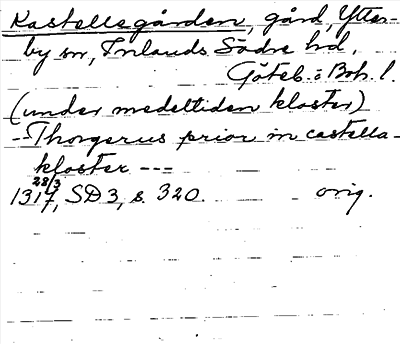 Kastellegården, gård, Ytter-
by sn, Inlands Södre hd,
Göteb. o Boh. l.
(under medeltiden kloster)
-- Thorgerus prior in castella-
kloster ---
28/3
1317, SD 3, s. 320. orig.